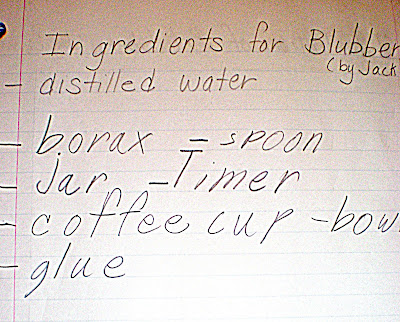 Ingredients for Blubber
(by Jack
- distilled water
- borax - spoon
- Jar - Timer
- coffee cup - bow
- glue